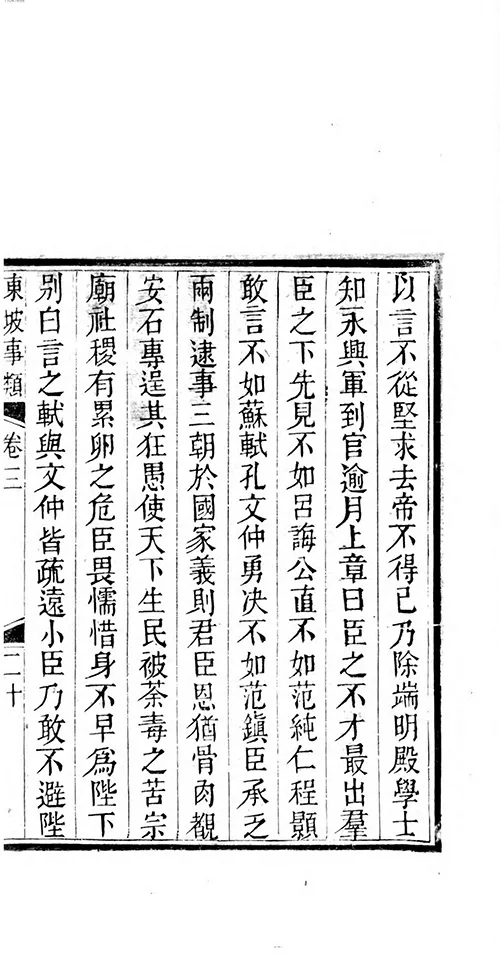 以言不從堅求去帝不得已乃除端明殿學士
知永興軍到官逾月上章曰臣之不才最出羣
臣之下先見不如呂誨公直不如范純仁程顥
敢言不如蘇軾孔文仲勇决不如范鎭臣承乏
兩制逮事三朝於國家義則君臣恩猶骨肉覩
安石專逞其狂愚使天下生民被荼毒之苦宗
廟社稷有累卵之危臣畏懦惜身不早爲陛下
别白言之軾與文仲皆疏遠小臣乃敢不避陛
東坡事類 卷三 二十